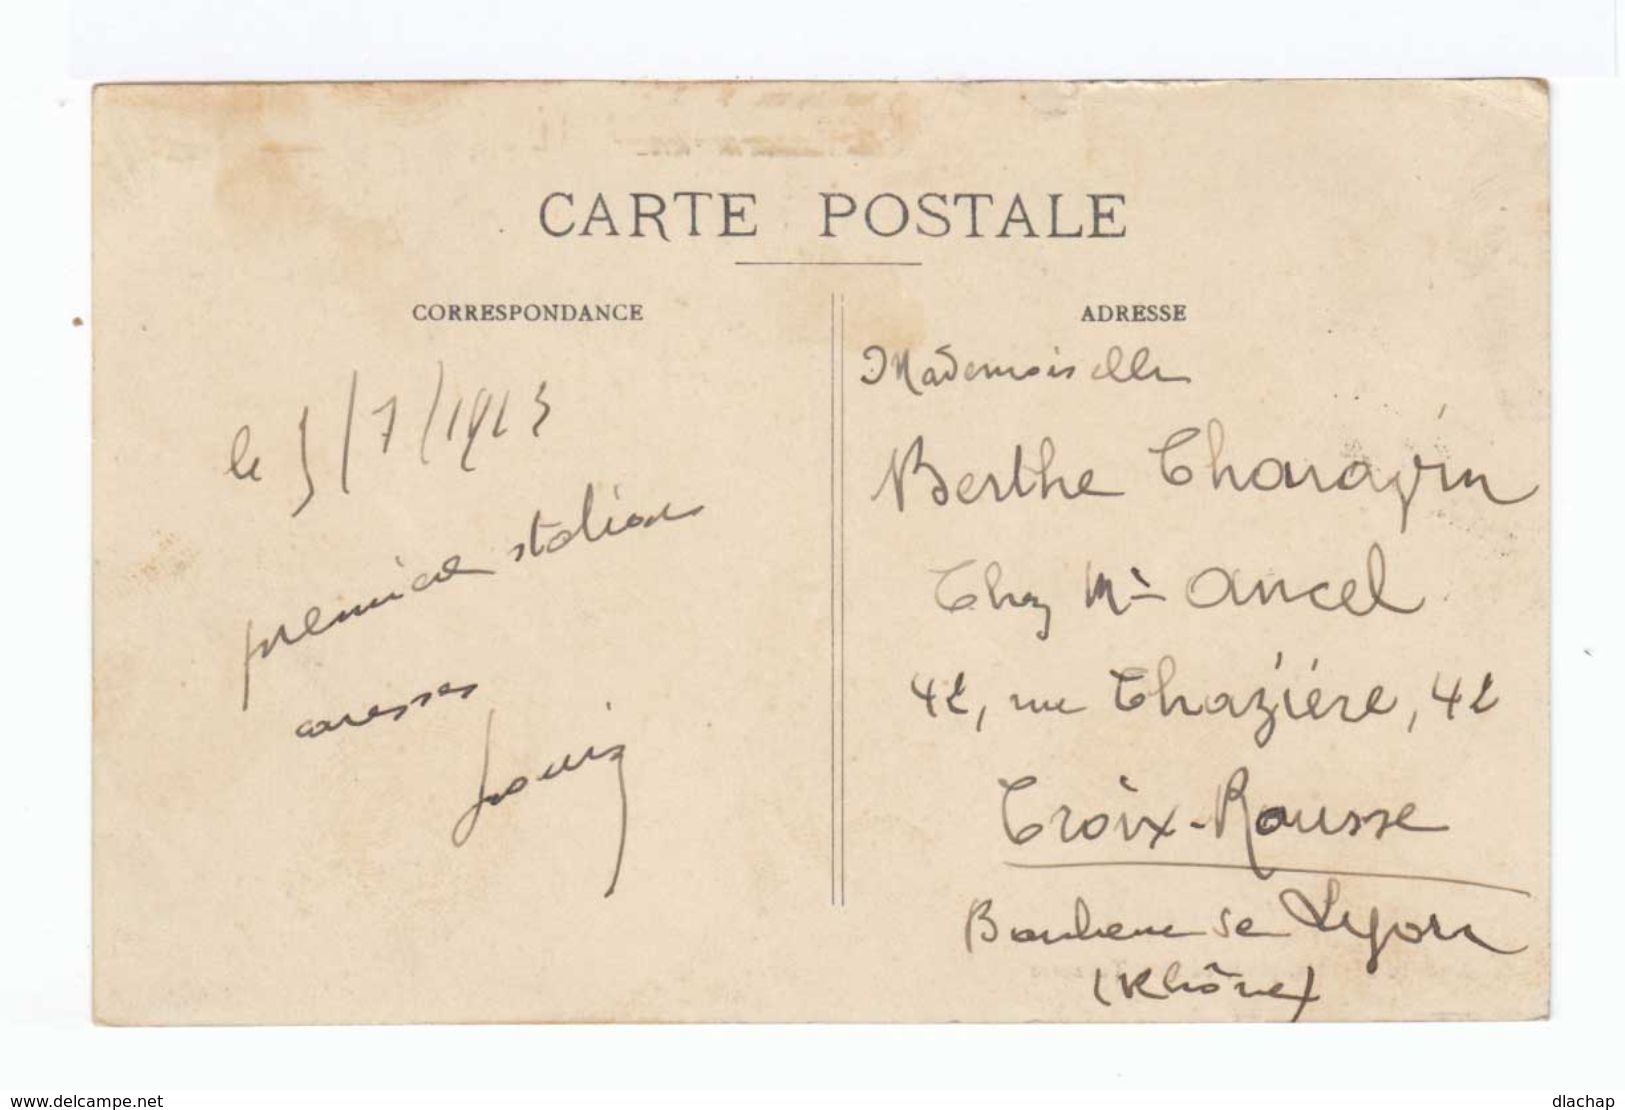 CARTE POSTALE
CORRESPONDANCE
le 5/7/1913
première station
caresses
Louis
ADRESSE
Mademoiselle
Berthe
Chez Mr Ancel
42, rue Chazière, 42
Croix-Rousse
Banlieue de Lyon
(Rhône)
www.delcampe.net
dlachap